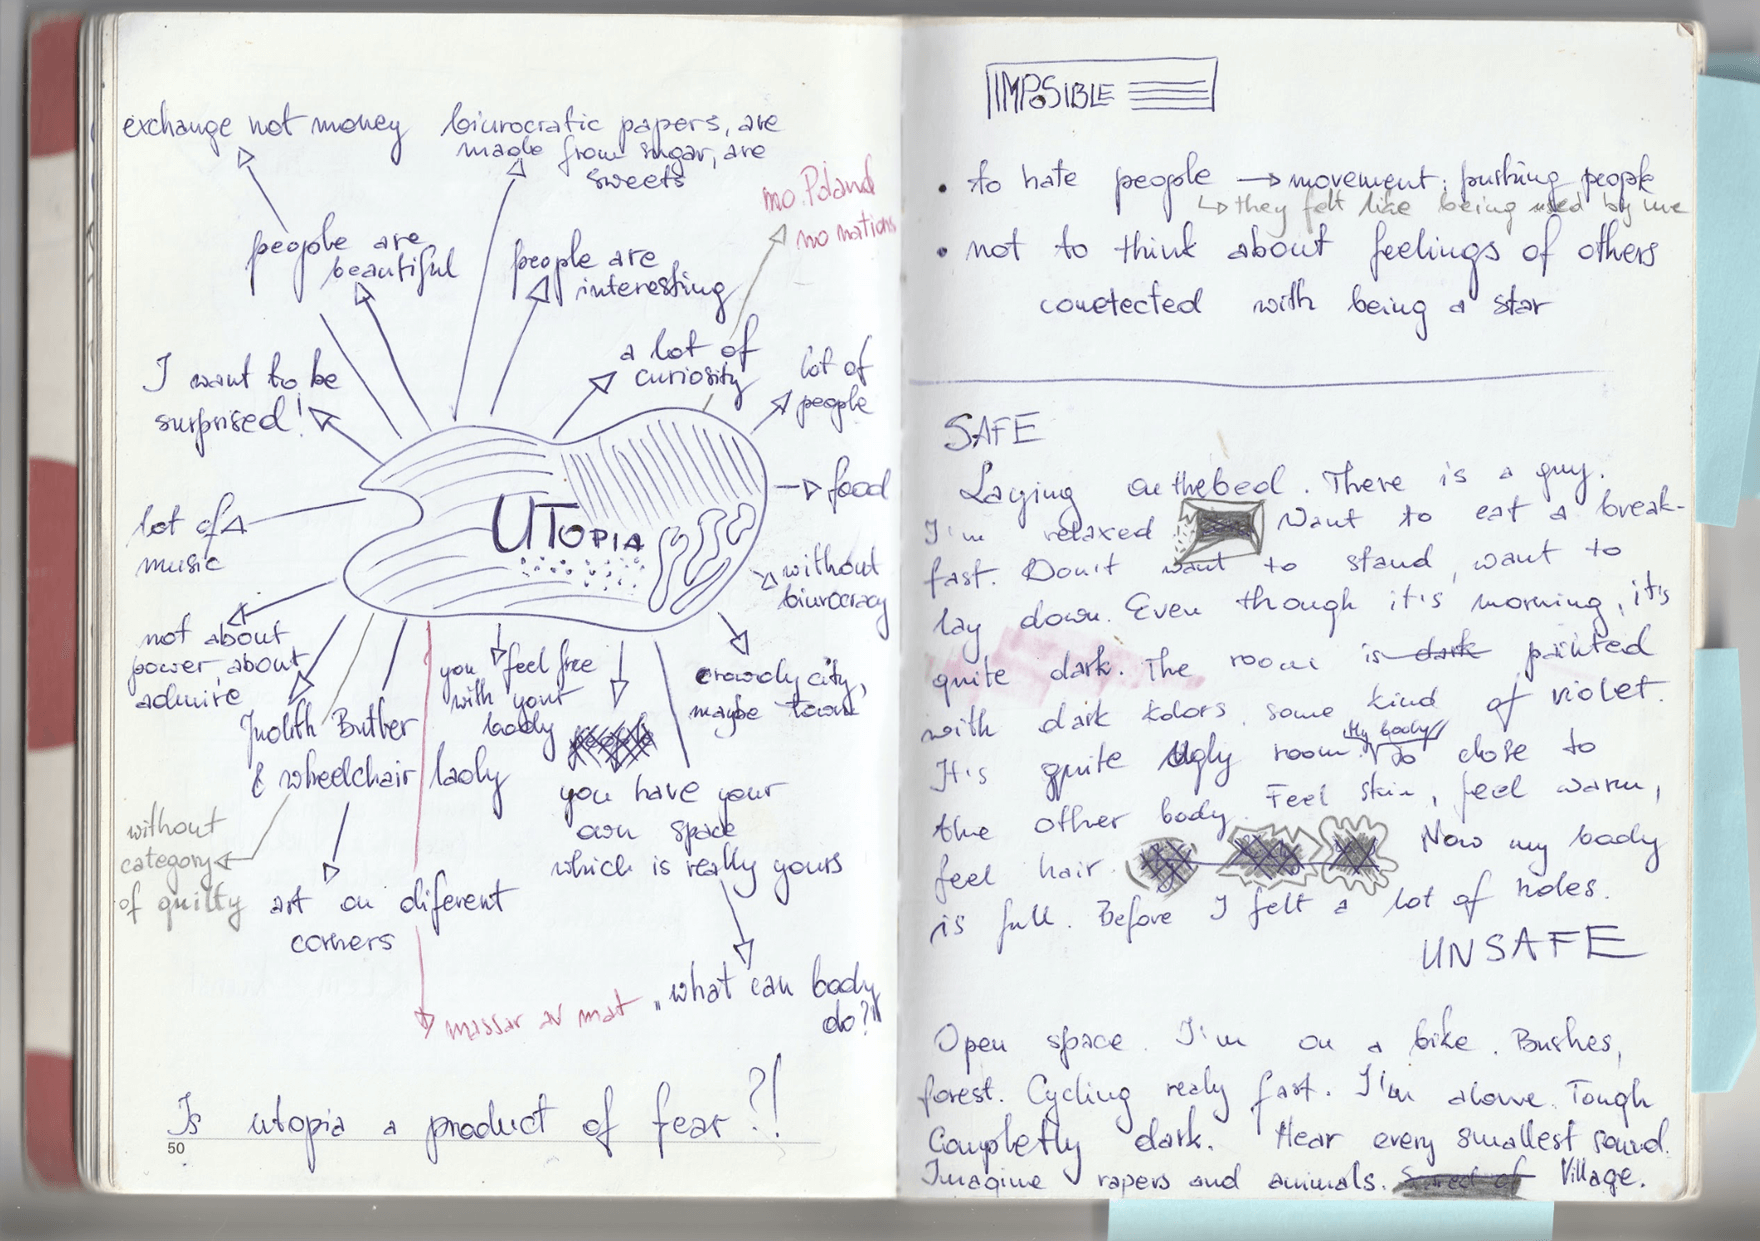 exchange not money
biurocratic papers, are
made from sugar, are
sweets
no Poland
no nations
people are
beautiful
people are
interesting
a lot of
curiosity
lot of
people
I want to be
surprised!
food
lot of
music
UTOPIA
without
biurocracy
not about
power, about
admire
you feel free
with yout
body
crowdy city,
maybe town
Judith Butler
& wheelchair lady
you have your
own space
which is really yours
without
category
of guilty
art on diferent
corners
massar av mat
"what can body
do?"
Is utopia a product of fear?!
50
IMPOSIBLE
• to hate people → movement: pushing people
↳ they felt like being used by me
• not to think about feelings of others
conetected with being a star
SAFE
Laying on the bed. There is a guy.
I'm relaxed Want to eat a break-
fast. Don't want to stand, want to
lay down. Even though it's morning, it's
quite dark. The room is dark painted
with dark kolors, some kind of violet.
It's quite Ugly room. My body so close to
the other body. Feel skin, feel warm,
feel hair. Now my body
is full. Before I felt a lot of holes.
UNSAFE
Open space. I'm on a bike. Bushes,
forest. Cycling realy fast. I'm alone. Tough
Completly dark. Hear every smallest sound.
Imagine rapers and animals. Village.